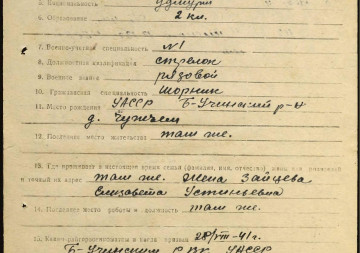 5. Национальность удмурт
6. Образование 2 кл.
7. Военно-учетная специальность №1
8. Должностная квалификация стрелок
9. Военное звание рядовой
10. Гражданская специальность Шорник
11. Место рождения УАССР Б-Учинский р-н
д.
12. Постоянное место жительства там же.
13. Где проживает в настоящее время семья (фамилия, имя, отчество)
и точный их адрес там же. Жена Зайцева
Елизавета Устиньевна
14. Последнее место работы и должность там же.
15. Каким райвоенкоматом и когда призван 28/VIII-41г.
Б-Учинским РВК УАССР